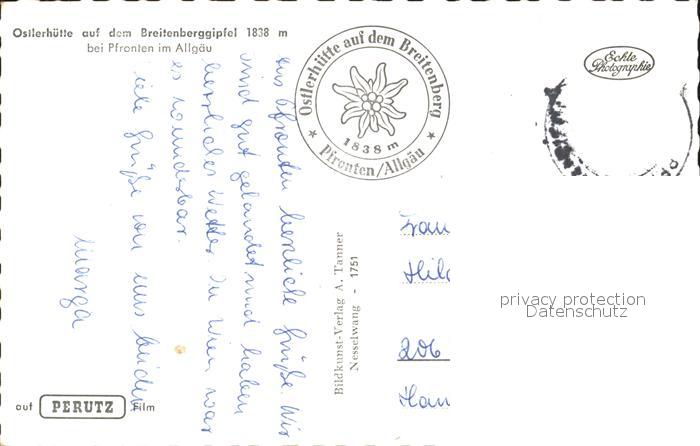 Ostlerhütte auf dem Breitenberggipfel 1838 m
bei Pfronten im Allgäu
Ostlerhütte auf dem Breitenberg
1838 m
Pfronten/Allgäu
Echte
Photographie
Aus Pfronten herzliche Grüße. Wir
sind gut gelandet und haben
herrliches Wetter. In Wien war
es wunderbar.
Viele Grüße von uns beiden
Marga
Bildkunst-Verlag A. Tanner
Nesselwang - 1751
Frau
206
auf PERUTZ Film
privacy protection
Datenschutz